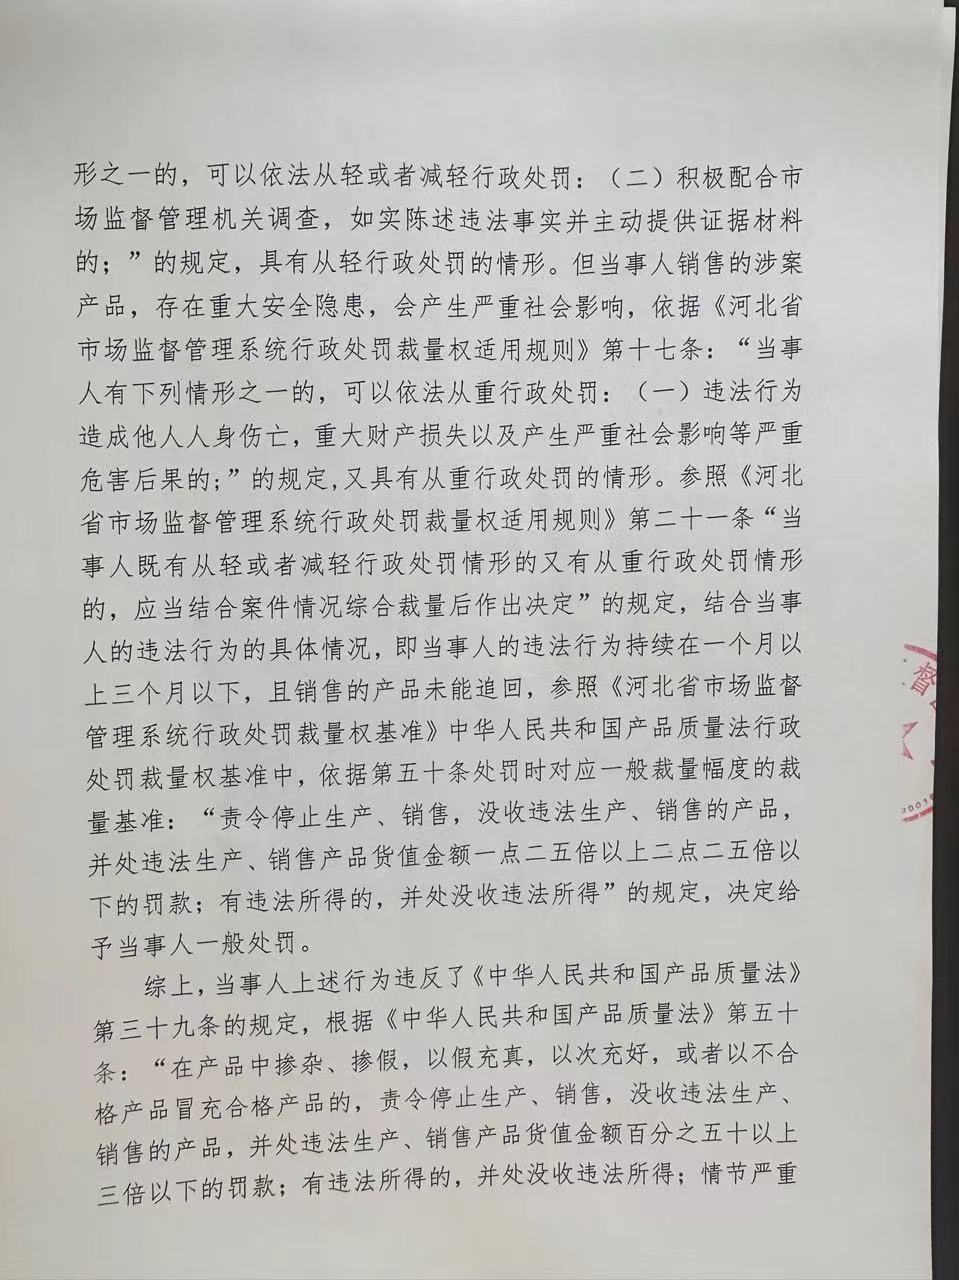 形之一的，可以依法从轻或者减轻行政处罚：（二）积极配合市
场监督管理机关调查，如实陈述违法事实并主动提供证据材料
的；”的规定，具有从轻行政处罚的情形。但当事人销售的涉案
产品，存在重大安全隐患，会产生严重社会影响，依据《河北省
市场监督管理系统行政处罚裁量权适用规则》第十七条：“当事
人有下列情形之一的，可以依法从重行政处罚：（一）违法行为
造成他人人身伤亡，重大财产损失以及产生严重社会影响等严重
危害后果的;”的规定,又具有从重行政处罚的情形。参照《河北
省市场监督管理系统行政处罚裁量权适用规则》第二十一条“当
事人既有从轻或者减轻行政处罚情形的又有从重行政处罚情形
的，应当结合案件情况综合裁量后作出决定”的规定，结合当事
人的违法行为的具体情况，即当事人的违法行为持续在一个月以
上三个月以下，且销售的产品未能追回，参照《河北省市场监督
管理系统行政处罚裁量权基准》中华人民共和国产品质量法行政
处罚裁量权基准中，依据第五十条处罚时对应一般裁量幅度的裁
量基准：“责令停止生产、销售，没收违法生产、销售的产品，
并处违法生产、销售产品货值金额一点二五倍以上二点二五倍以
下的罚款；有违法所得的，并处没收违法所得”的规定，决定给
予当事人一般处罚。
综上，当事人上述行为违反了《中华人民共和国产品质量法》
第三十九条的规定，根据《中华人民共和国产品质量法》第五十
条：“在产品中掺杂、掺假，以假充真，以次充好，或者以不合
格产品冒充合格产品的，责令停止生产、销售，没收违法生产、
销售的产品，并处违法生产、销售产品货值金额百分之五十以上
三倍以下的罚款；有违法所得的，并处没收违法所得；情节严重
督